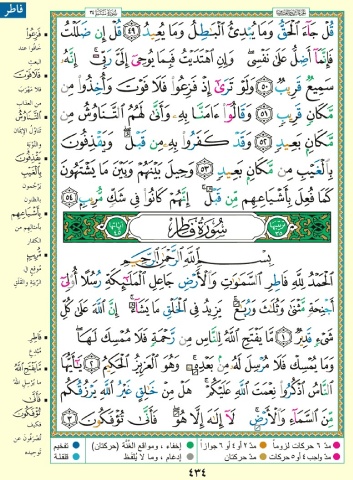 فاطر
قُلْ جَآءَ ٱلْحَقُّ وَمَا يُبْدِئُ ٱلْبَٰطِلُ وَمَا يُعِيدُ ٤٩ قُلْ إِن ضَلَلْتُ
فَإِنَّمَآ أَضِلُّ عَلَىٰ نَفْسِى وَإِنِ ٱهْتَدَيْتُ فَبِمَا يُوحِىٓ إِلَىَّ رَبِّىٓ إِنَّهُۥ
سَمِيعٌ قَرِيبٌ ٥٠ وَلَوْ تَرَىٰٓ إِذْ فَزِعُوا۟ فَلَا فَوْتَ وَأُخِذُوا۟ مِن
مَّكَانٍ قَرِيبٍ ٥١ وَقَالُوٓا۟ ءَامَنَّا بِهِۦ وَأَنَّىٰ لَهُمُ ٱلتَّنَاوُشُ مِن
مَّكَانٍۭ بَعِيدٍ ٥٢ وَقَدْ كَفَرُوا۟ بِهِۦ مِن قَبْلُ وَيَقْذِفُونَ
بِٱلْغَيْبِ مِن مَّكَانٍۭ بَعِيدٍ ٥٣ وَحِيلَ بَيْنَهُمْ وَبَيْنَ مَا يَشْتَهُونَ
كَمَا فُعِلَ بِأَشْيَاعِهِم مِّن قَبْلُ إِنَّهُمْ كَانُوا۟ فِى شَكٍّ مُّرِيبٍۭ ٥٤
سُورَةُ فَاطِرٍ
بِسْمِ ٱللَّهِ ٱلرَّحْمَٰنِ ٱلرَّحِيمِ
ٱلْحَمْدُ لِلَّهِ فَاطِرِ ٱلسَّمَٰوَٰتِ وَٱلْأَرْضِ جَاعِلِ ٱلْمَلَٰٓئِكَةِ رُسُلًا أُو۟لِىٓ
أَجْنِحَةٍ مَّثْنَىٰ وَثُلَٰثَ وَرُبَٰعَ يَزِيدُ فِى ٱلْخَلْقِ مَا يَشَآءُ إِنَّ ٱللَّهَ عَلَىٰ كُلِّ
شَىْءٍ قَدِيرٌ ١ مَّا يَفْتَحِ ٱللَّهُ لِلنَّاسِ مِن رَّحْمَةٍ فَلَا مُمْسِكَ لَهَا
وَمَا يُمْسِكْ فَلَا مُرْسِلَ لَهُۥ مِنۢ بَعْدِهِۦ وَهُوَ ٱلْعَزِيزُ ٱلْحَكِيمُ ٢ يَٰٓأَيُّهَا
ٱلنَّاسُ ٱذْكُرُوا۟ نِعْمَتَ ٱللَّهِ عَلَيْكُمْ هَلْ مِنْ خَٰلِقٍ غَيْرُ ٱللَّهِ يَرْزُقُكُم
مِّنَ ٱلسَّمَآءِ وَٱلْأَرْضِ لَآ إِلَٰهَ إِلَّا هُوَ فَأَنَّىٰ تُؤْفَكُونَ ٣
فَزِعُوا۟
خافوا عند
البعث
فَلَا فَوْتَ
فلا مهرب
من العذاب
ٱلتَّنَاوُشُ
تناول الإيمان
والتوبة
يَقْذِفُونَ
بِٱلْغَيْبِ
يرجمون
بالظنون
بِأَشْيَاعِهِم
بأمثالهم من
الكفار
مُّرِيبٍ
موقع في
الريبة والقلق
فَاطِرِ
مبدع
مَّا يَفْتَحِ ٱللَّهُ
ما يرسل الله
فَأَنَّىٰ
تُؤْفَكُونَ
فكيف
تصرفون عن
توحيده
مدّ ٦ حركات لزوماً
مدّ ٢ أو ٤ أو ٦ جوازاً
إخفاء، ومواقع الغنّة (حركتان)
تفخيم
مدّ واجب ٤ أو ٥ حركات
مدّ حركتان
إدغام، وما لا يُلفظ
قلقلة
٤٣٤